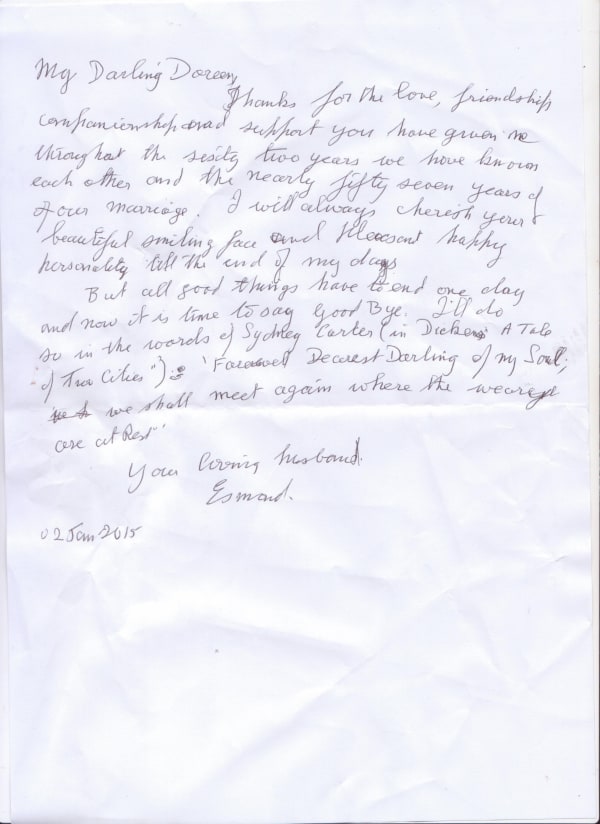 My Darling Doreen,
Thanks for the love, friendship
companionship and support you have given me
throughout the sixty two years we have known
each other and the nearly fifty seven years of
of our marriage. I will always cherish your
beautiful smiling face and pleasant happy
personality till the end of my days
But all good things have to end one day
and now it is time to say Good Bye. I'll do
so in the words of Sydney Carter (in Dickens' A Tale
of Two Cities") : 'Farewell Dearest Darling of my Soul,
we shall meet again where the weary
are at Rest"
Your loving husband.
Esmond.
02 Jan 2015